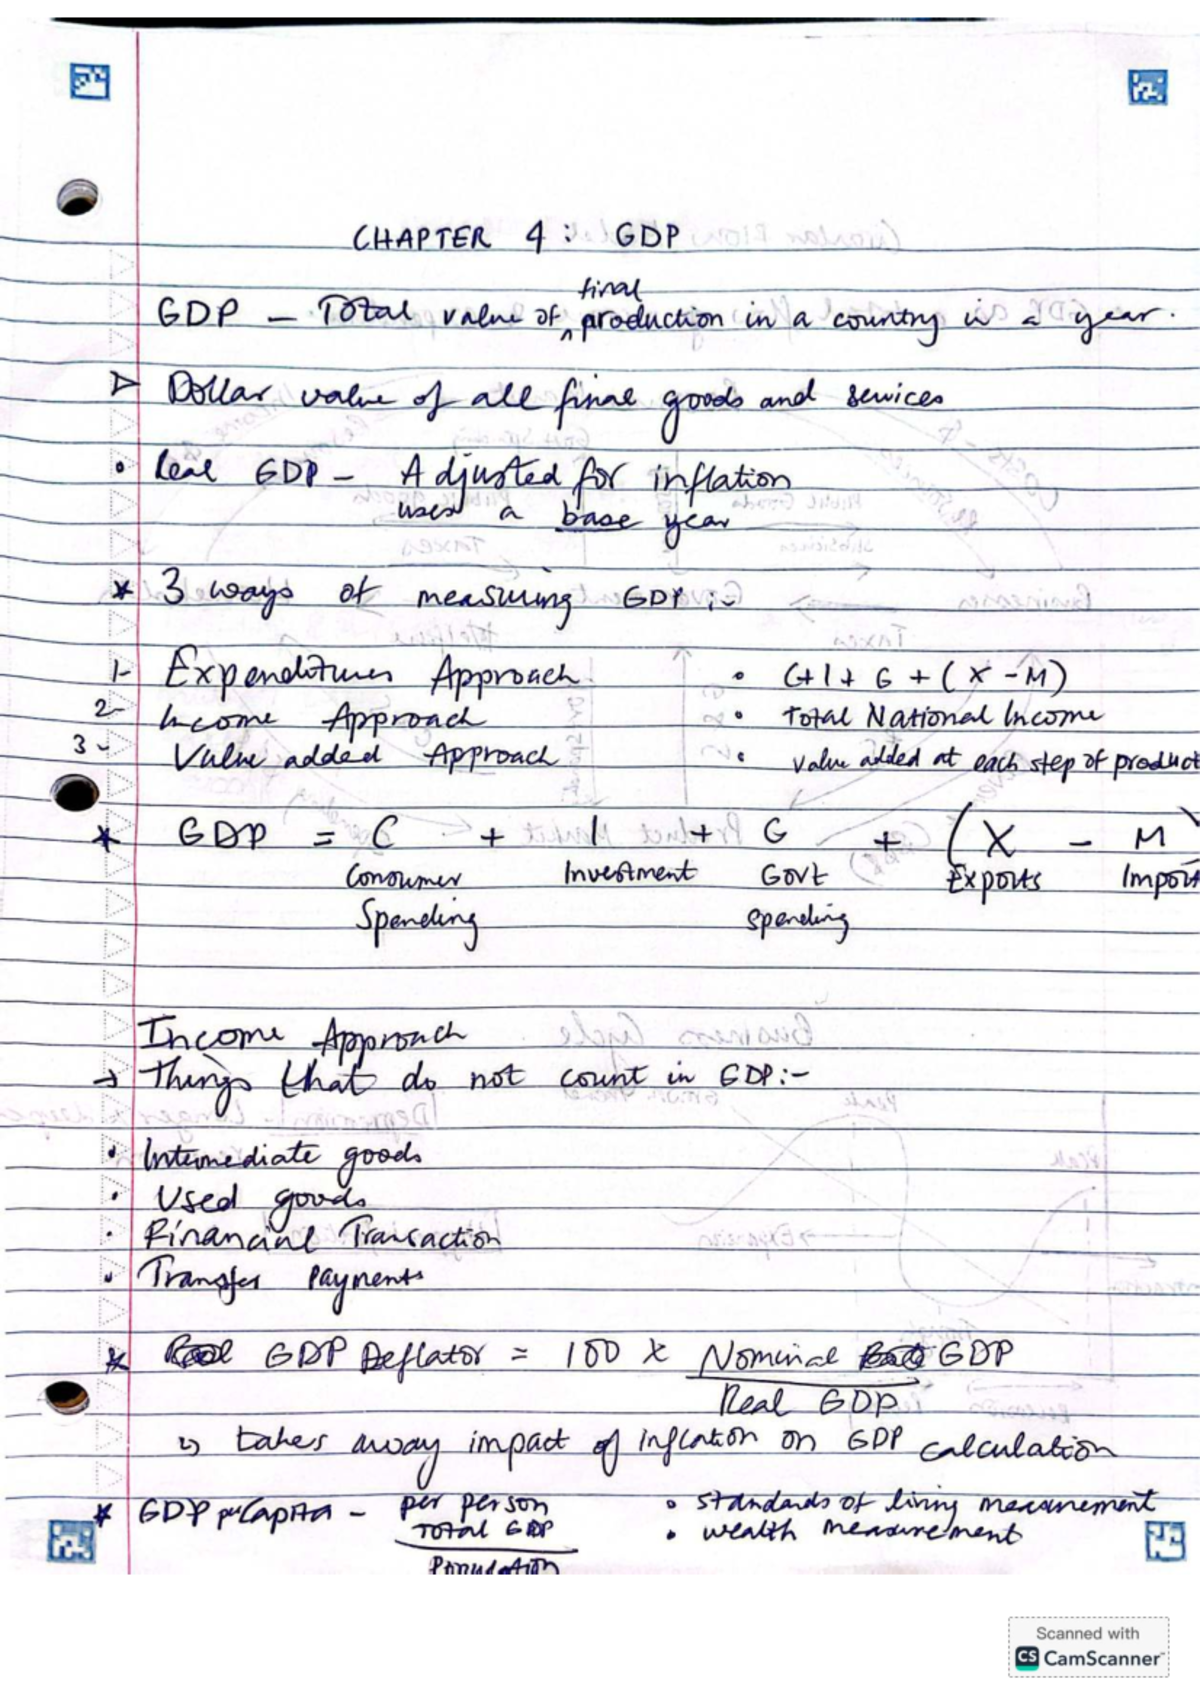 CHAPTER 4 : GDP
GDP – Total value of final production in a country in a year.
▷ Dollar value of all final goods and services
• Real GDP – Adjusted for inflation
uses a base year
* 3 ways of measuring GDP :-
1- Expenditures Approach • C+I+G+(X-M)
2- Income Approach • Total National Income
3- Value added Approach • Value added at each step of product
* GDP = C + I + G + (X - M)
Consumer Investment Govt Exports Import
Spending spending
Income Approach
→ Things that do not count in GDP:-
• Intermediate goods
• Used goods
• Financial Transaction
• Transfer payments
* GDP Deflator = 100 x Nominal GDP
Real GDP
↳ takes away impact of inflation on GDP calculation
* GDP per Capita – per person • standards of living measurement
Total GDP • wealth measurement
Population
Scanned with
CS CamScanner